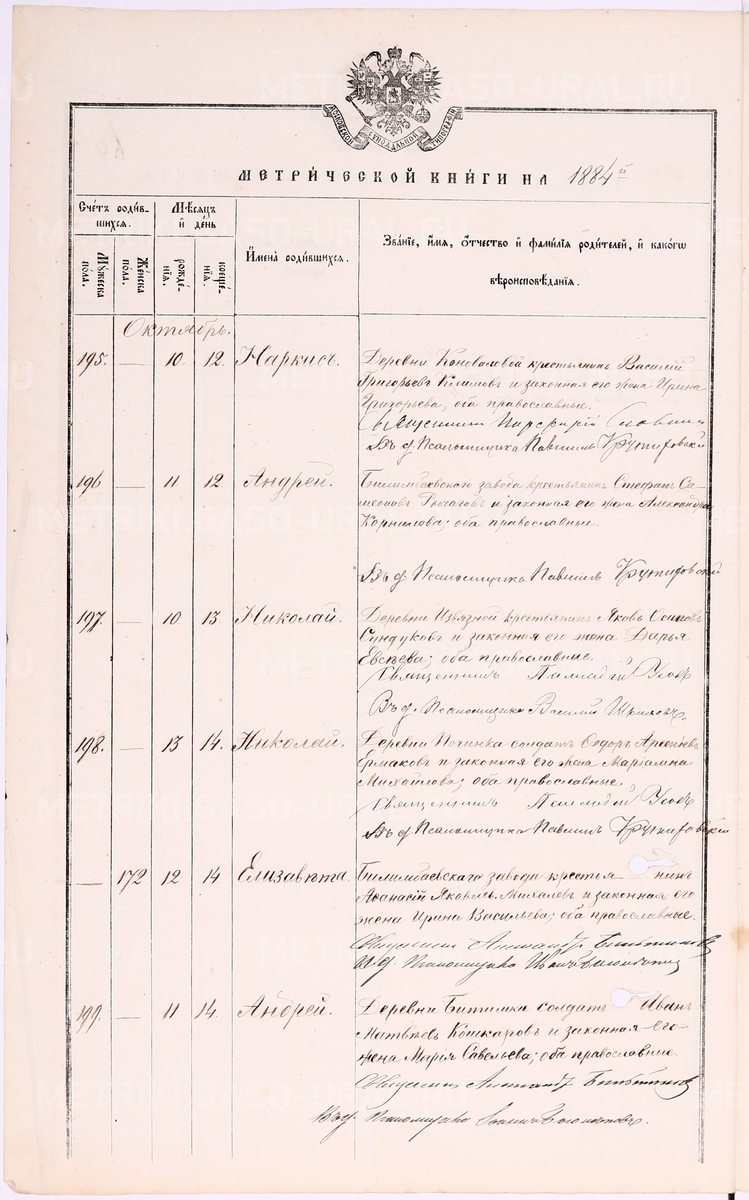 МОСКОВСКОЙ СѴНОДАЛЬНОЙ ТИПОГРАФІИ
МЕТРИ́ЧЕСКОЙ КНИ́ГИ НА 1884й
Счётъ роди́в-
шихся.
Мѣ́сяцъ
и҆ де́нь
И҆мена̀ роди́вшихся.
Зва́нїе, и҆́мя, ѻ҆́тчество и҆ фами́лїя роди́телей, и҆ како́гѡ
вѣроисповѣ́данїя.
Мꙋ́жеска
по́ла.
Же́нска
по́ла.
рожде́-
нїя.
креще́-
нїя.
Октябрь.
195. — 10. 12. Наркисъ. Деревни Коноваловой крестьянинъ Василій
Григорьевъ и законная его жена Ирина
Григорьева, оба православные.
Священникъ Порфирій
Въ д. Псаломщика Павлинъ
196 — 11 12 Андрей. Билимбаевскаго завода крестьянинъ Стефанъ Си-
меоновъ Рычаговъ и законная его жена Александра
Корнилова; оба православные.
Въ д. Псаломщика Павлинъ
197. — 10 13 Николай. Деревни Извязной крестьянинъ Яковъ Осиповъ
Сундуковъ и законная его жена Дарья
Евсѣева; оба православные.
Священникъ Палладій
Въ д. Псаломщика Василій
198. — 13 14. Николай. Деревни Починка солдатъ Ѳедоръ Арсеніевъ
Ермаковъ и законная его жена Маріамна
Михайлова; оба православные.
Священникъ Палладій
Въ д. Псаломщика Павлинъ
— 172 12 14 Елизавета. Билимбаевскаго завода крестьянинъ
Аѳанасій Яковлевъ Михалевъ и законная его
жена Ирина Васильева; оба православные.
Священникъ Александръ
И. д. Псаломщика
199. — 11 14. Андрей. Деревни Битимки солдатъ Иванъ
Матвѣевъ Кошкаровъ и законная его
жена Марія Савельева; оба православные.
Священникъ Александръ
И. д. Псаломщика